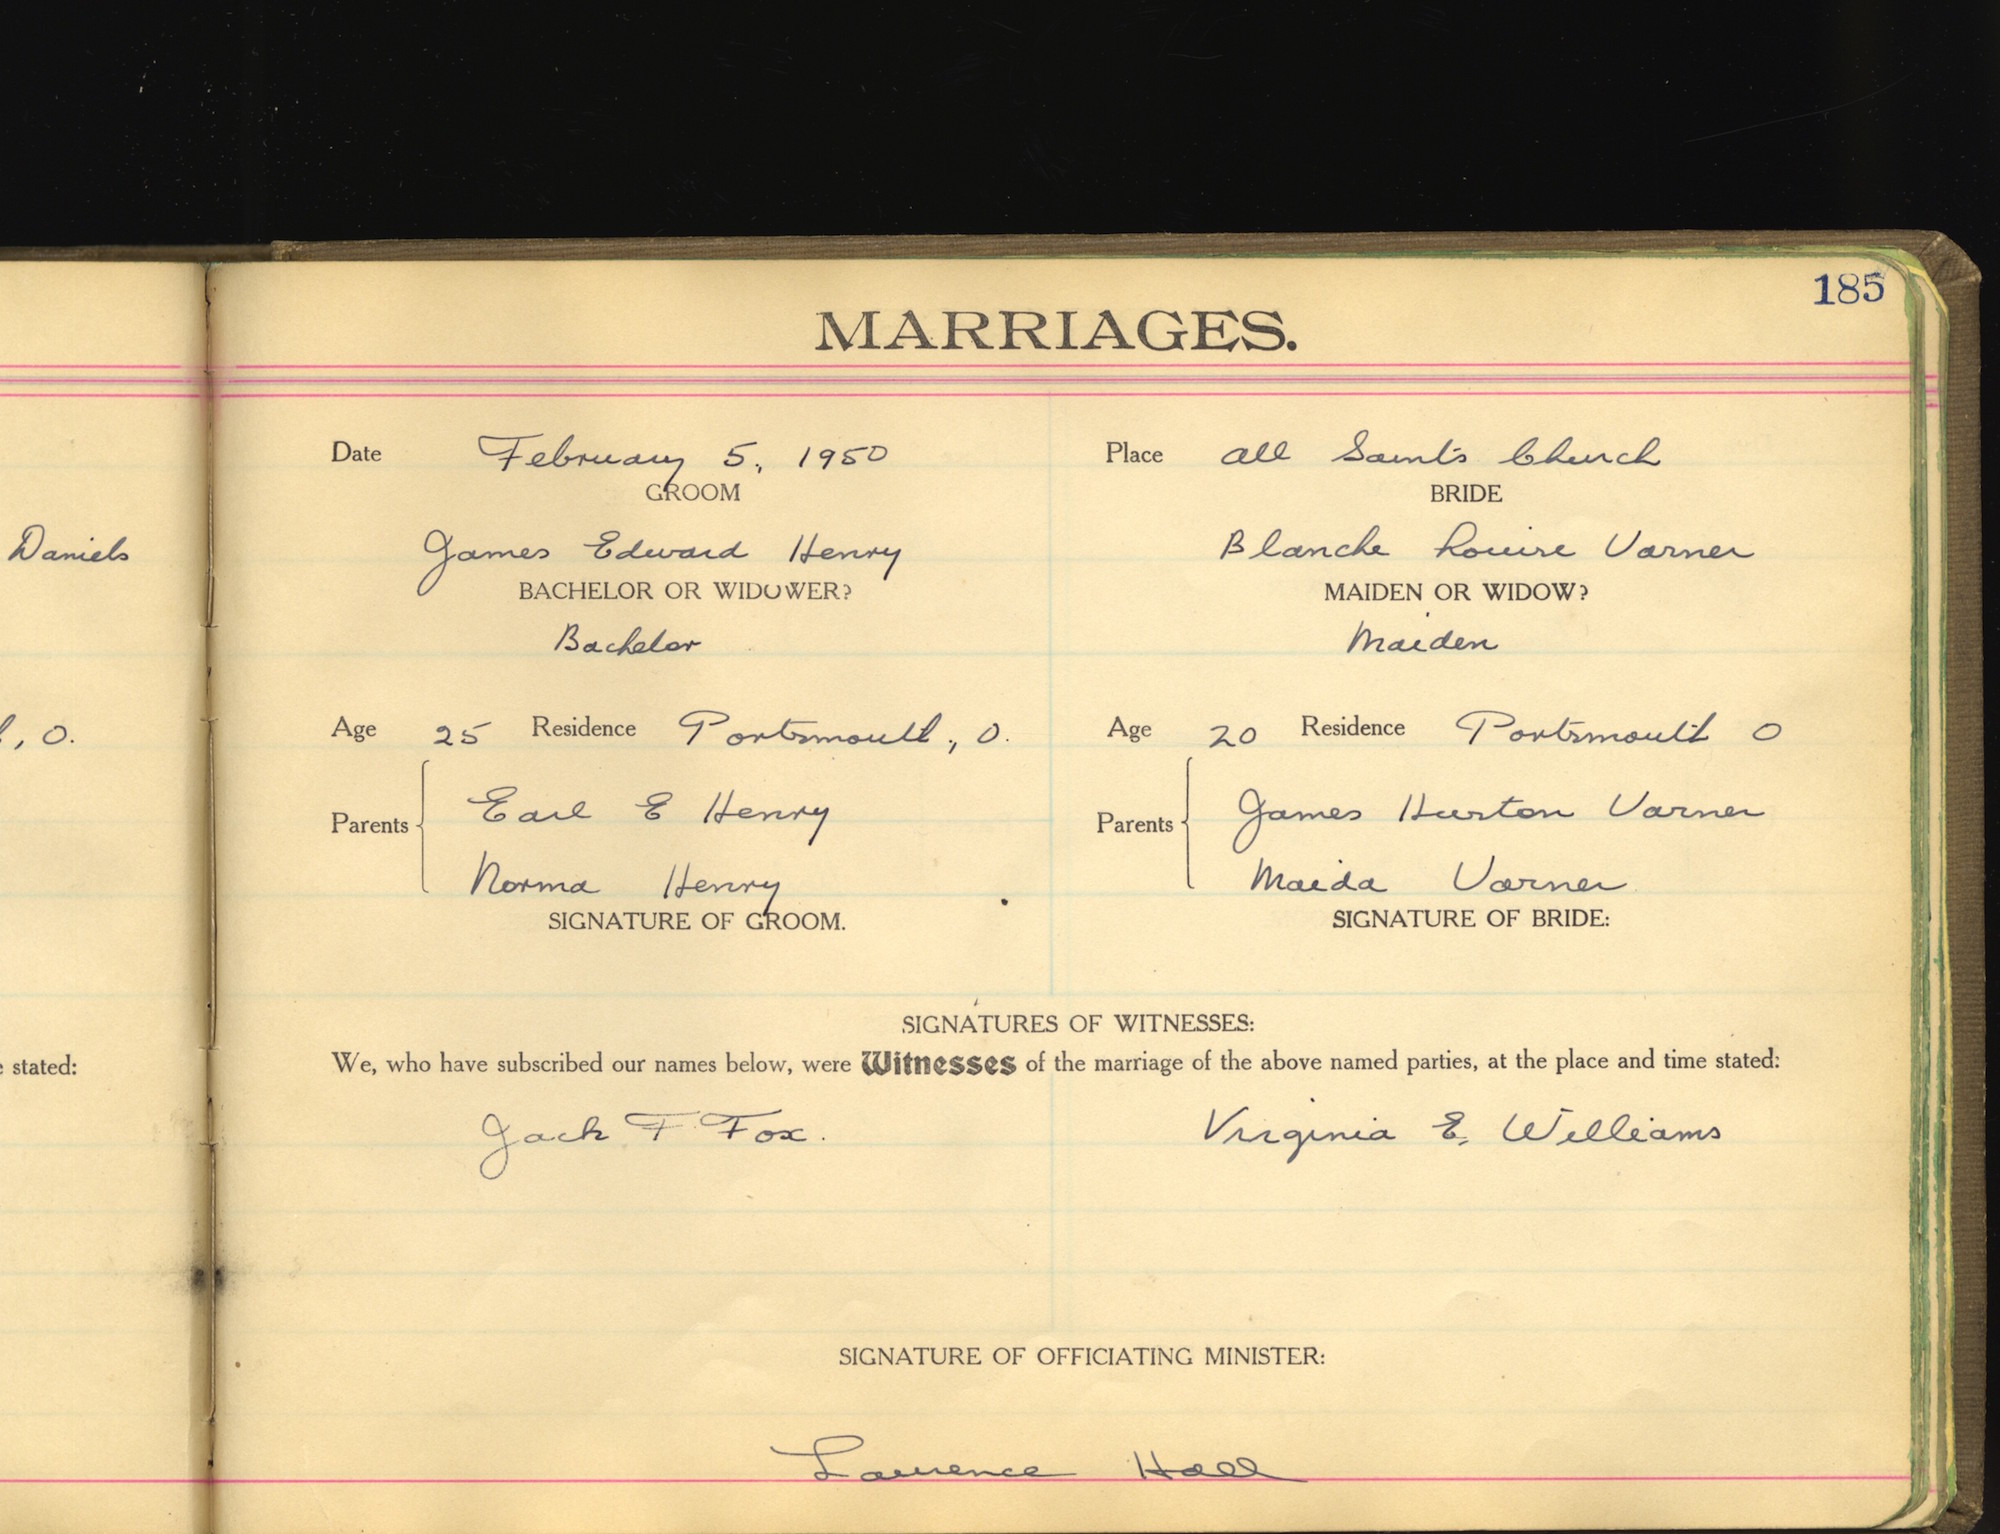 185
MARRIAGES.
Date February 5, 1950 Place All Saints Church
GROOM BRIDE
Daniels James Edward Henry Blanche Louise Varner
BACHELOR OR WIDOWER? MAIDEN OR WIDOW?
Bachelor Maiden
, O. Age 25 Residence Portsmouth, O. Age 20 Residence Portsmouth O
Parents Earl E Henry Parents James Hurston Varner
Norma Henry Maida Varner
SIGNATURE OF GROOM. SIGNATURE OF BRIDE:
SIGNATURES OF WITNESSES:
stated: We, who have subscribed our names below, were Witnesses of the marriage of the above named parties, at the place and time stated:
Jack F. Fox. Virginia E. Williams
SIGNATURE OF OFFICIATING MINISTER:
Laurence Hall